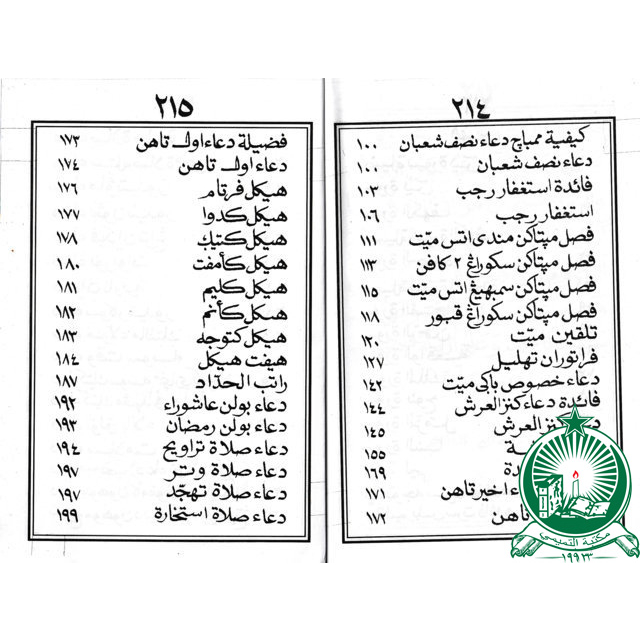 ٢١٤
كيفية ممباچ دعاء نصف شعبان ١٠٠
دعاء نصف شعبان ١٠٠
فائدة استغفار رجب ١٠٣
استغفار رجب ١٠٦
فصل مپتاكن مندي اتس ميّت ١١١
فصل مپتاكن سكوراڠ ٢ كافن ١١٣
فصل مپتاكن سمبهيڠ اتس ميّت ١١٥
فصل مپتاكن سكوراڠ قبور ١١٨
تلقين ميّت ١٢٠
فراتوران تهليل ١٢٧
دعاء خصوص باكي ميّت ١٤٢
فائدة دعاء كنز العرش ١٤٤
كنز العرش ١٤٥
١٥٥
١٦٩
اخير تاهن ١٧١
تاهن ١٧٢
٢١٥
فضيلة دعاء اول تاهن ١٧٣
دعاء اول تاهن ١٧٤
هيكل فرتام ١٧٦
هيكل كدوا ١٧٧
هيكل كتيك ١٧٨
هيكل كأمفت ١٨٠
هيكل كليم ١٨١
هيكل كأنم ١٨٢
هيكل كتوجه ١٨٣
هيفت هيكل ١٨٤
راتب الحدّاد ١٨٧
دعاء بولن عاشوراء ١٩٢
دعاء بولن رمضان ١٩٣
دعاء صلاة تراويح ١٩٤
دعاء صلاة وتر ١٩٧
دعاء صلاة تهجّد ١٩٧
دعاء صلاة استخارة ١٩٩
مكتبة التميمي